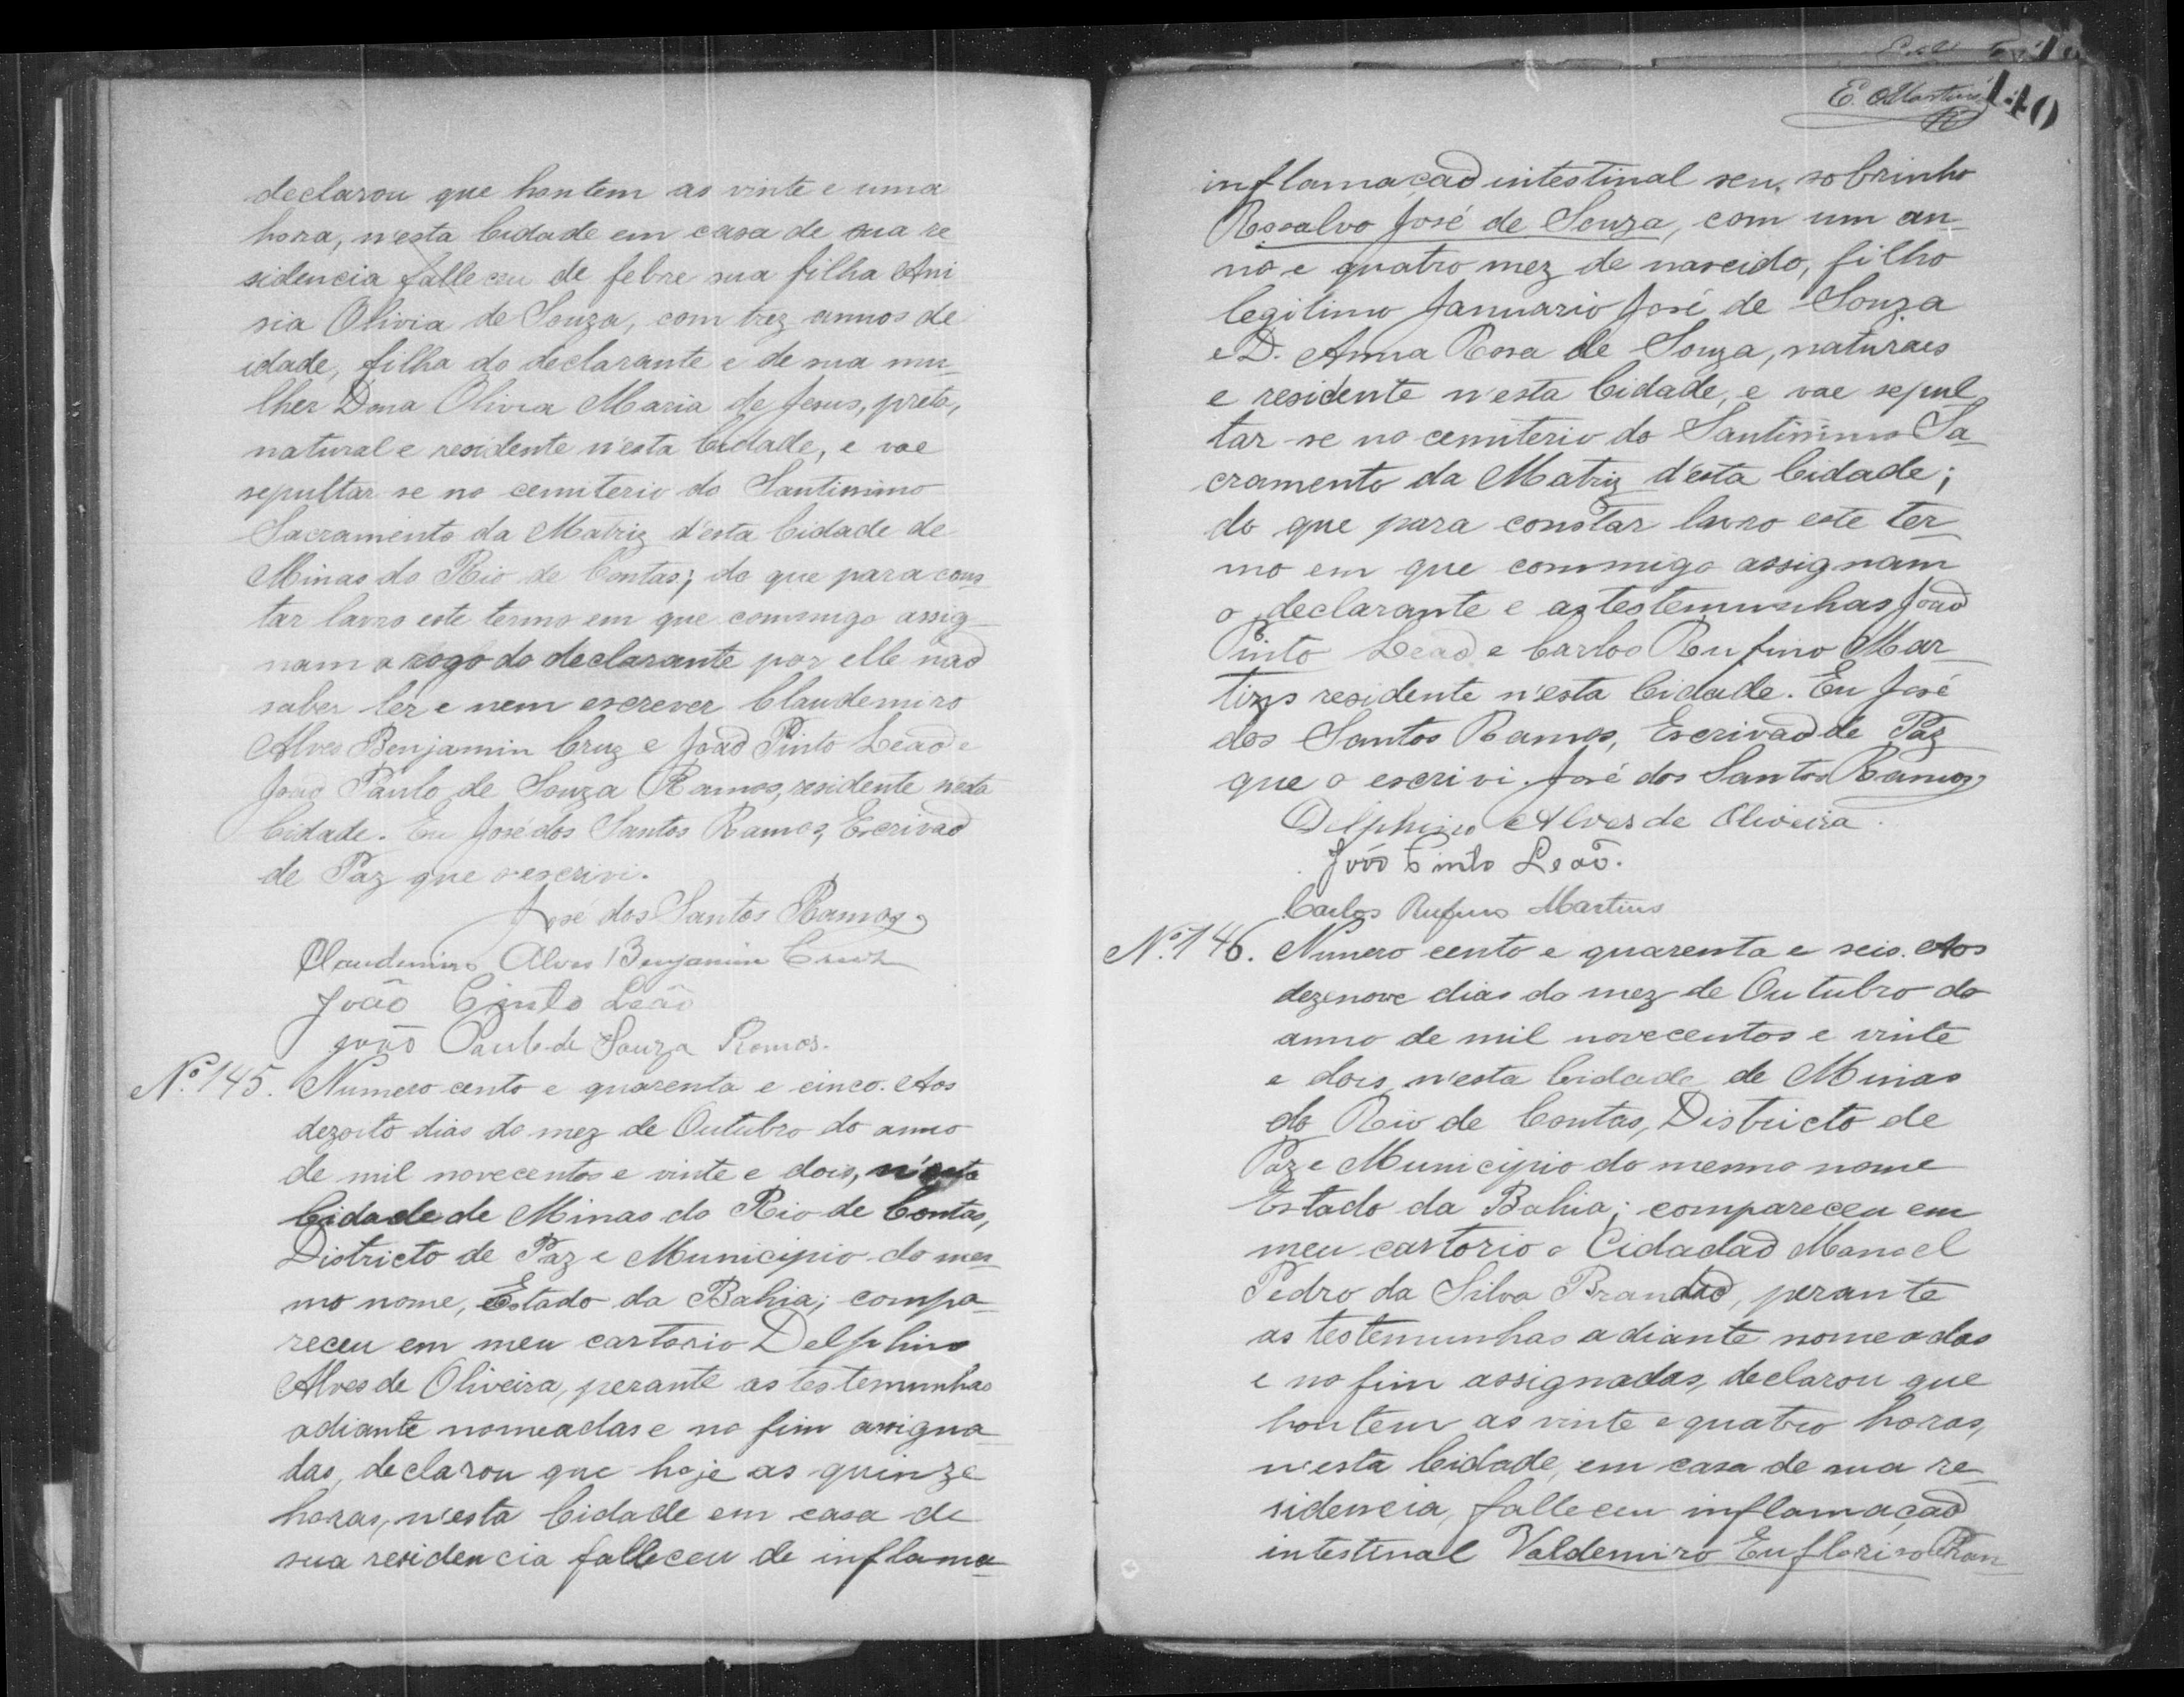 declarou que hontem as vinte e uma
hora, n'esta Cidade em casa de sua re
sidencia falleceu de febre sua filha Ani
sia Olivia de Souza, com trez annos de
idade, filha do declarante e de sua mu_
lher Dona Olivia Maria de Jesus, preta,
natural e residente n'esta Cidade, e vae
sepultar se no cemiterio do Santissimo
Sacramento da Matriz d'esta Cidade de
Minas do Rio de Contas; do que para cons_
tar lavro este termo em que commigo assig_
nam a rogo do declarante por elle não
saber ler e nem escrever Claudemiro
Alves Benjamin Cruz e João Pinto Leão e
João Paulo de Souza Ramos, residente nesta
Cidade. Eu José dos Santos Ramos, Escrivão
de Paz que o escrivi.
José dos Santos Ramos
Claudemiro Alves Benjamin Cruz
João Pinto Leão
João Paulo de Souza Ramos.
Nº 145. Numero cento e quarenta e cinco. Aos
dezoito dias do mez de Outubro do anno
de mil novecentos e vinte e dois, n'esta
Cidade de Minas do Rio de Contas,
Districto de Paz e Municipio do mes_
mo nome, Estado da Bahia; compa_
receu em meu cartorio Delphino
Alves de Oliveira, perante as testemunhas
adiante nomeadas e no fim assigna_
das, declarou que hoje as quinze
horas, n'esta Cidade em casa de
sua residencia falleceu de inflama_
E. Martins 140
inflamação intestinal seu sobrinho
Rosalvo José de Souza, com um an_
no e quatro mez de nascido, filho
legitimo Januario José de Souza
e D. Anna Rosa de Souza, naturaes
e residente n'esta Cidade, e vae sepul
tar-se no cemiterio do Santissimo Sa_
cramento da Matriz d'esta Cidade;
do que para constar lavro este ter_
mo em que commigo assignam
o declarante e as testemunhas João
Pinto Leão e Carlos Rufino Mar_
tins residente n'esta Cidade. Eu José
dos Santos Ramos, Escrivão de Paz
que o escrivi. José dos Santos Ramos
Delphino Alves de Oliveira.
João Pinto Leão.
Carlos Rufino Martins
Nº 146. Numero cento e quarenta e seis. Aos
dezenove dias do mez de Outubro do
anno de mil novecentos e vinte
e dois, n'esta Cidade de Minas
do Rio de Contas, Districto de
Paz e Municipio do mesmo nome
Estado da Bahia; compareceu em
meu cartorio o Cidadão Manoel
Pedro da Silva Brandão, perante
as testemunhas adiante nomeadas
e no fim assignadas, declarou que
hontem as vinte e quatro horas,
n'esta Cidade, em casa de sua re_
sidencia, falleceu inflamação
intestinal Valdemiro Euflorino Bran_